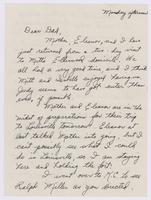 Monday afternoon
Dear Dad,
Mother, Eleanor, and I have
just returned from a two-day visit
to Mitt
We
all had a very good time and I think
Mitt and enjoyed having us.
Judy seems to have got cuter than
ever, if possible.
Mother and Eleanor are in the
midst of preparations for their trip
to Louisville tomorrow. Eleanor at
last talked Mother into going, but I
can't possibly see what I could
do in Louisville so I am staying
here and holding the fort.
I went over to K.C. to see
Ralph Miller as you directed.